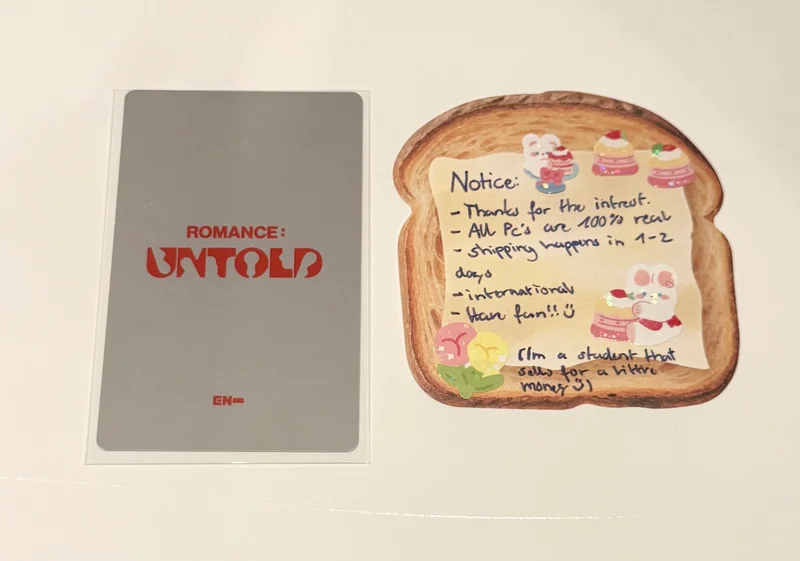 ROMANCE:
UNTOLD
EN-
Notice:
- Thanks for the intrest.
- All Pc's are 100% real
- shipping happens in 1-2
days
- international
- Have fun!! :)
(I'm a student that
sells for a little
money :))